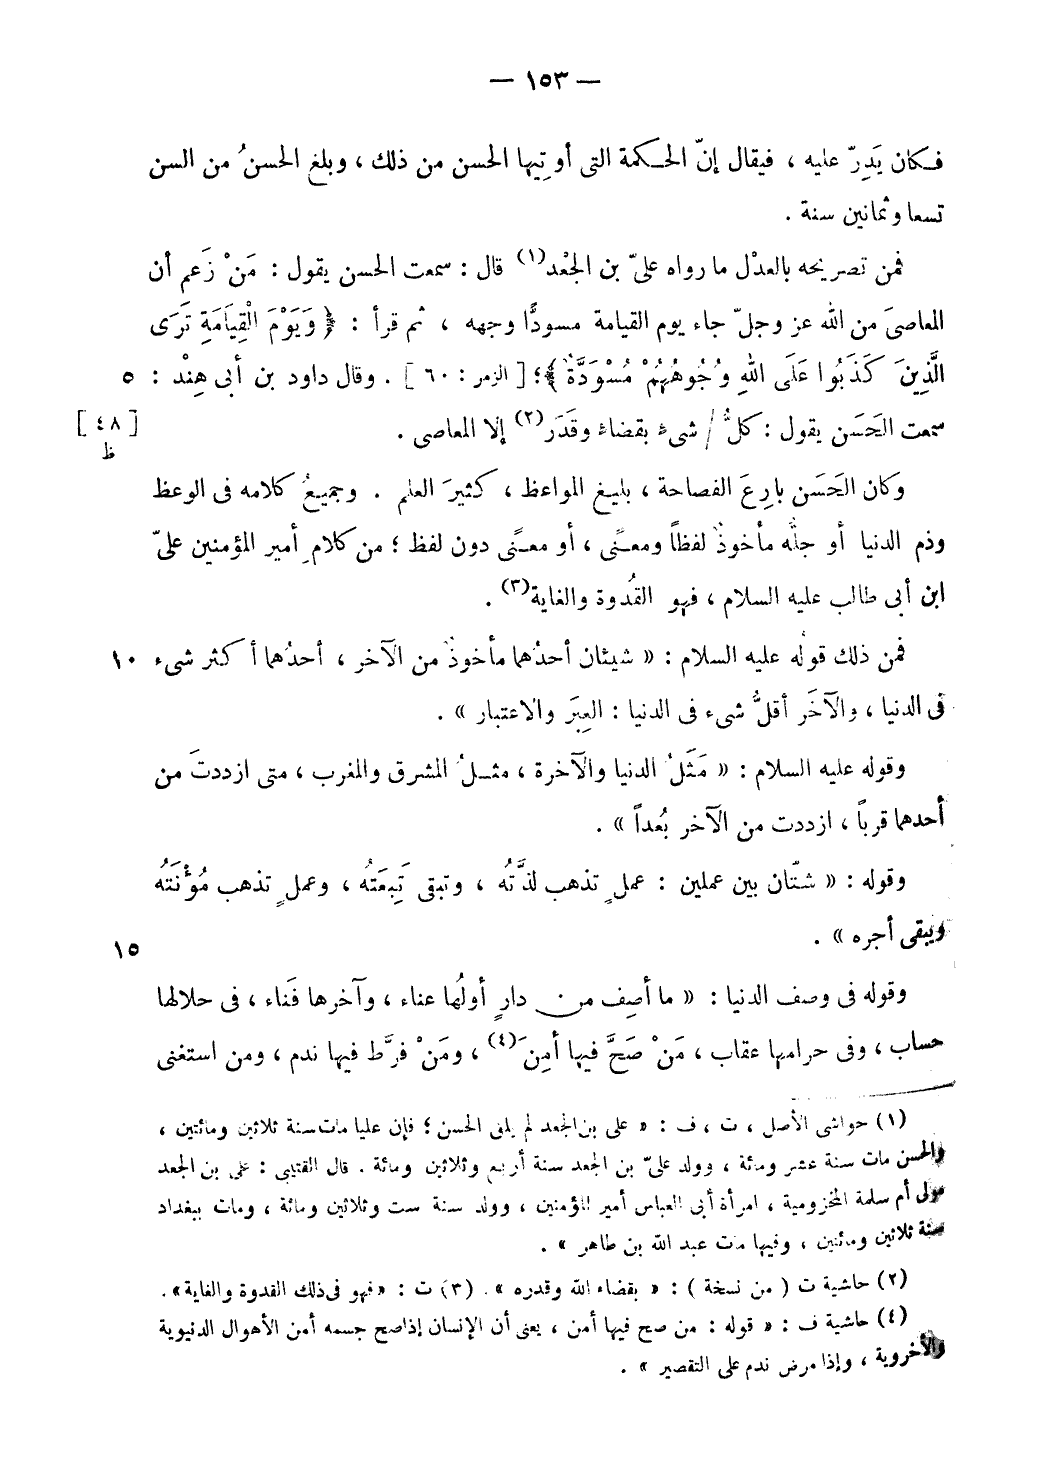 — ١٥٣ —
فـكان يَدِرّ عليه ، فيقال إنّ الحـكمة التى أوتِيها الحسن من ذلك ، وبلغ الحسنُ من السن
تسعا وثمانين سنة .
فمن تصريحه بالعدْل ما رواه علىّ بن الجَعْد(١) قال : سمعت الحسن يقول : مَنْ زَعم أن
المعاصىَ من الله عز وجلّ جاء يوم القيامة مسودًّا وجهه ، ثم قرأ : ﴿ وَيَوْمَ الْقِيَامَةِ تَرَى
الَّذِينَ كَذَبُوا عَلَى اللهِ وُجُوهُهُمْ مُسْوَدَّةٌ ﴾؛ [ الزمر : ٦٠ ] . وقال داود بن أبى هِنْد : ٥
سمعت الحَسَن يقول : كلُّ / شىء بقضاء وقَدَر(٢) إلا المعاصى . [ ٤٨ ]
ظ
وكان الحَسَن بارِعَ الفصاحة ، بليغ المواعظ ، كثيرَ العلم . وجميعُ كلامه فى الوعظ
وذم الدنيا أو جلّه مأخوذٌ لفظاً ومعـنًى ، أو معـنًى دون لفظ ؛ من كلامِ أمير المؤمنين علىّ
ابن أبى طالب عليه السلام ، فهو القُدوة والغاية(٣) .
فمن ذلك قولُه عليه السلام : « شيئان أحدُهما مأخوذٌ من الآخر ، أحدُهما أكثر شىء ١٠
فى الدنيا ، والآخَر أقلُّ شىء فى الدنيا : العِبَر والاعتبار » .
وقوله عليه السلام : « مَثَلُ الدنيا والآخرة ، مثـلُ المشرق والمغرب ، متى ازددتَ من
أحدهما قرباً ، ازددت من الآخر بُعداً » .
وقوله : « شتّان بين عملين : عملٍ تذهب لذَّتُه ، وتبقى تَبِعَتُه ، وعملٍ تذهب مُؤْنَتُه
ويبقى أجره » . ١٥
وقوله فى وصف الدنيا : « ما أصِف من دارٍ أولُها عناء ، وآخرها فَناء ، فى حلالها
حساب ، وفى حرامها عقاب ، مَنْ صَحَّ فيها أمِنَ(٤) ، ومَنْ فرَّط فيها ندم ، ومن استغنى
(١) حواشى الأصل ، ت ، ف : « على بن الجعد لم يلق الحسن ؛ فإن عليا مات سنة ثلاثين ومائتين ،
والحسن مات سنة عشر ومائة ، وولد علىّ بن الجعد سنة أربع وثلاثين ومائة . قال القتيبى : على بن الجعد
مولى أم سلمة المخزومية ، امرأة أبى العباس أمير المؤمنين ، وولد سنة ست وثلاثين ومائة ، ومات ببغداد
سنة ثلاثين ومائتين ، وفيها مات عبد الله بن طاهر » .
(٢) حاشية ت ( من نسخة ) : « بقضاء الله وقدره » . (٣) ت : « فهو فى ذلك القدوة والغاية » .
(٤) حاشية ف : « قوله : من صح فيها أمن ، يعنى أن الإنسان إذا صح جسمه أمن الأهوال الدنيوية
والأخروية ، وإذا مرض ندم على التقصير » .